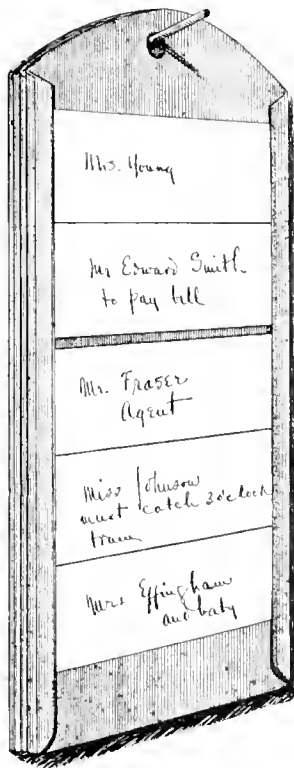 Mrs. Young
Mr Edward Smith
to pay bill
Mr. Fraser
Agent
Miss Johnson
must catch 3 o'clock
train
Mrs Effingham
and baby